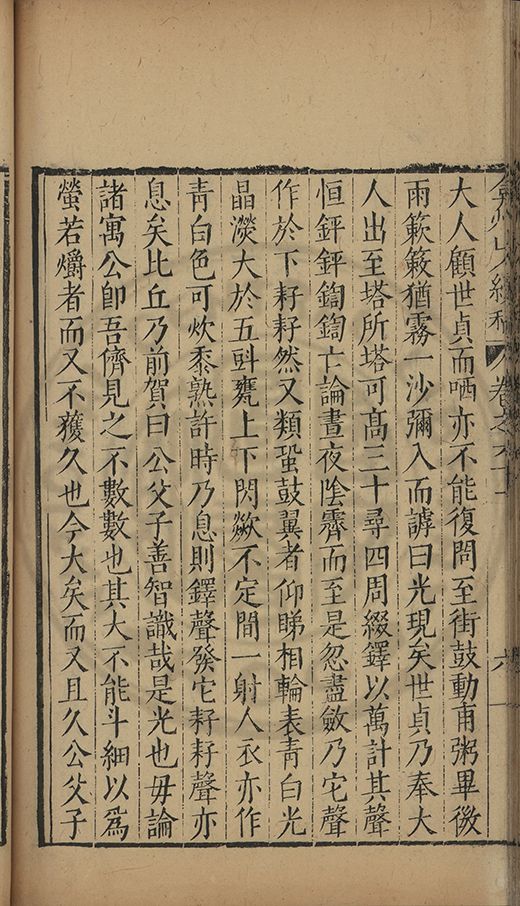 弇州山人續稿 卷之六十一 六
大人顧世貞而哂亦不能復問至街鼓動甫粥畢微
雨簌簌猶霧一沙彌入而謼曰光現矣世貞乃奉大
人出至塔所塔可髙三十尋四周綴鐸以萬計其聲
恒鈃鈃鍧鍧亡論晝夜陰霽而至是忽盡斂乃它聲
作於下耔耔然又類蛩鼓翼者仰睇相輪表青白光
晶濙大於五㪷甕上下閃歘不定間一射人衣亦作
青白色可炊黍熟許時乃息則鐸聲發它耔耔聲亦
息矣比丘乃前賀曰公父子善智識哉是光也毋論
諸寓公卽吾儕見之不數數也其大不能斗細以爲
螢若爝者而又不獲久也今大矣而又且久公父子